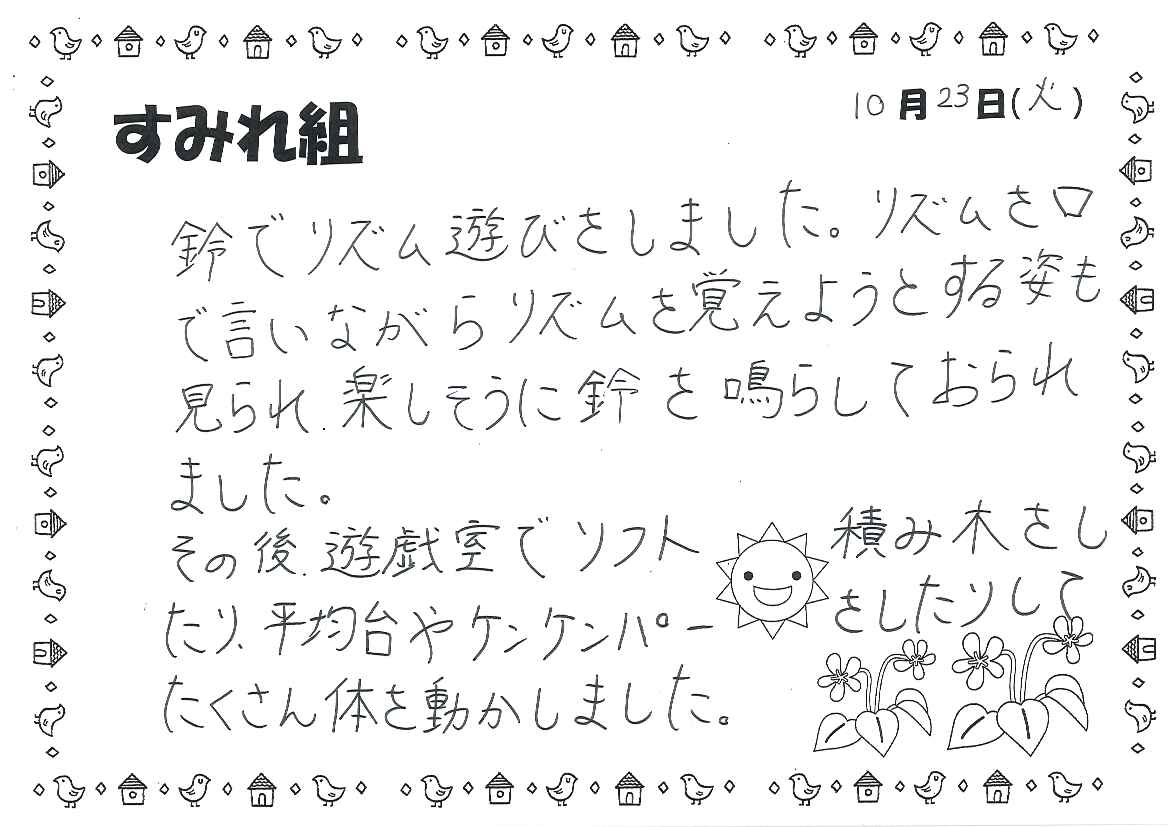 すみれ組
10月23日(火)
鈴でリズム遊びをしました。リズムを口
で言いながらリズムを覚えようとする姿も
見られ、楽しそうに鈴を鳴らしておられ
ました。
その後、遊戯室でソフト積み木をし
たり、平均台やケンケンパーをしたりして
たくさん体を動かしました。